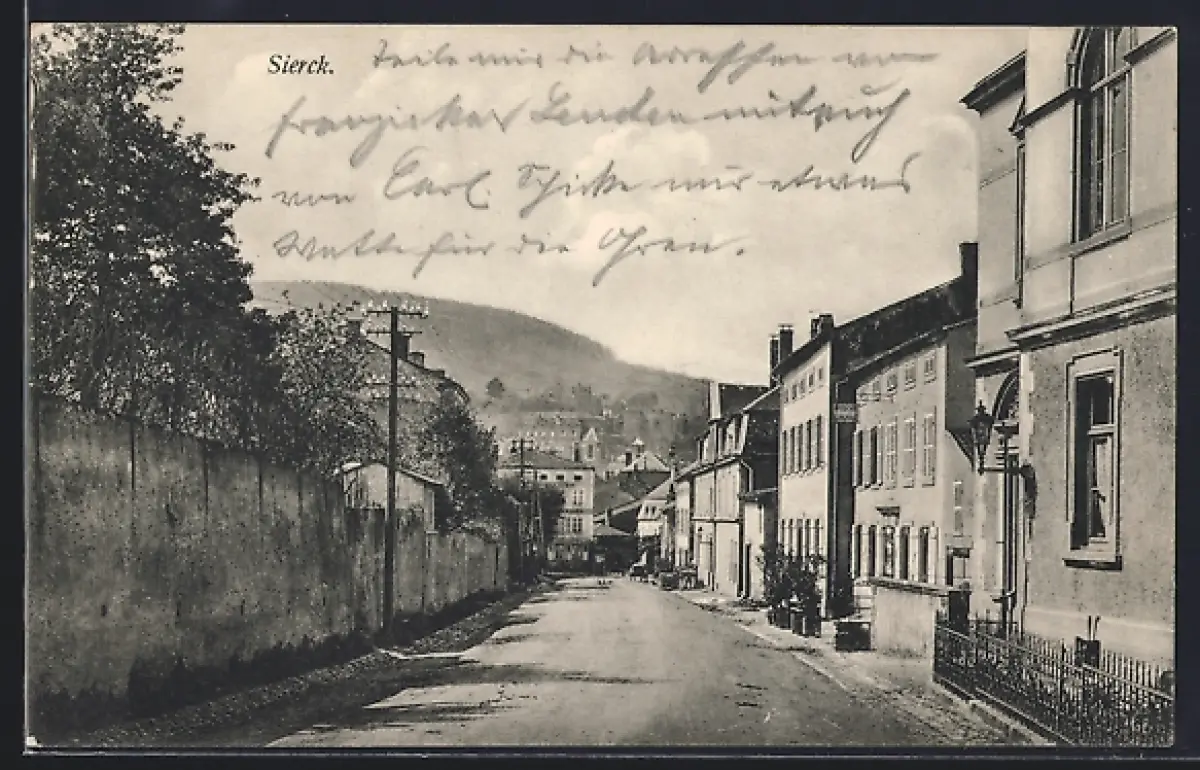 Sierck.
Teile mir die Adressen von
Franziskas Lenden mit auch
von Carl. Schicke mir etwas
Watte für die Ohren.